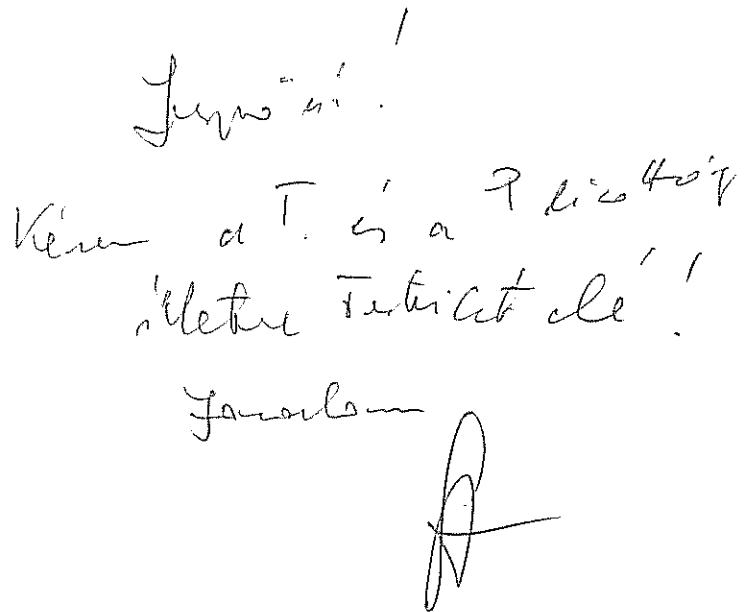 Jegyző úr!
Kérem a T. és a P bizottság
illetve Testület elé!
Javaslom